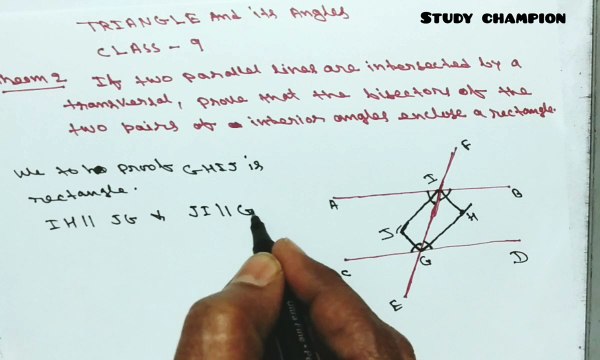 TRIANGLE And its Angles
STUDY CHAMPION
CLASS - 9
heorem 2 If two parallel lines are intersected by a
transversal, prove that the bisectors of the
two pairs of interior angles enclose a rectangle.
We to proof GHIJ is
rectangle.
IH || JG & JI || G
F
I
A
B
H
J
G
C
D
E